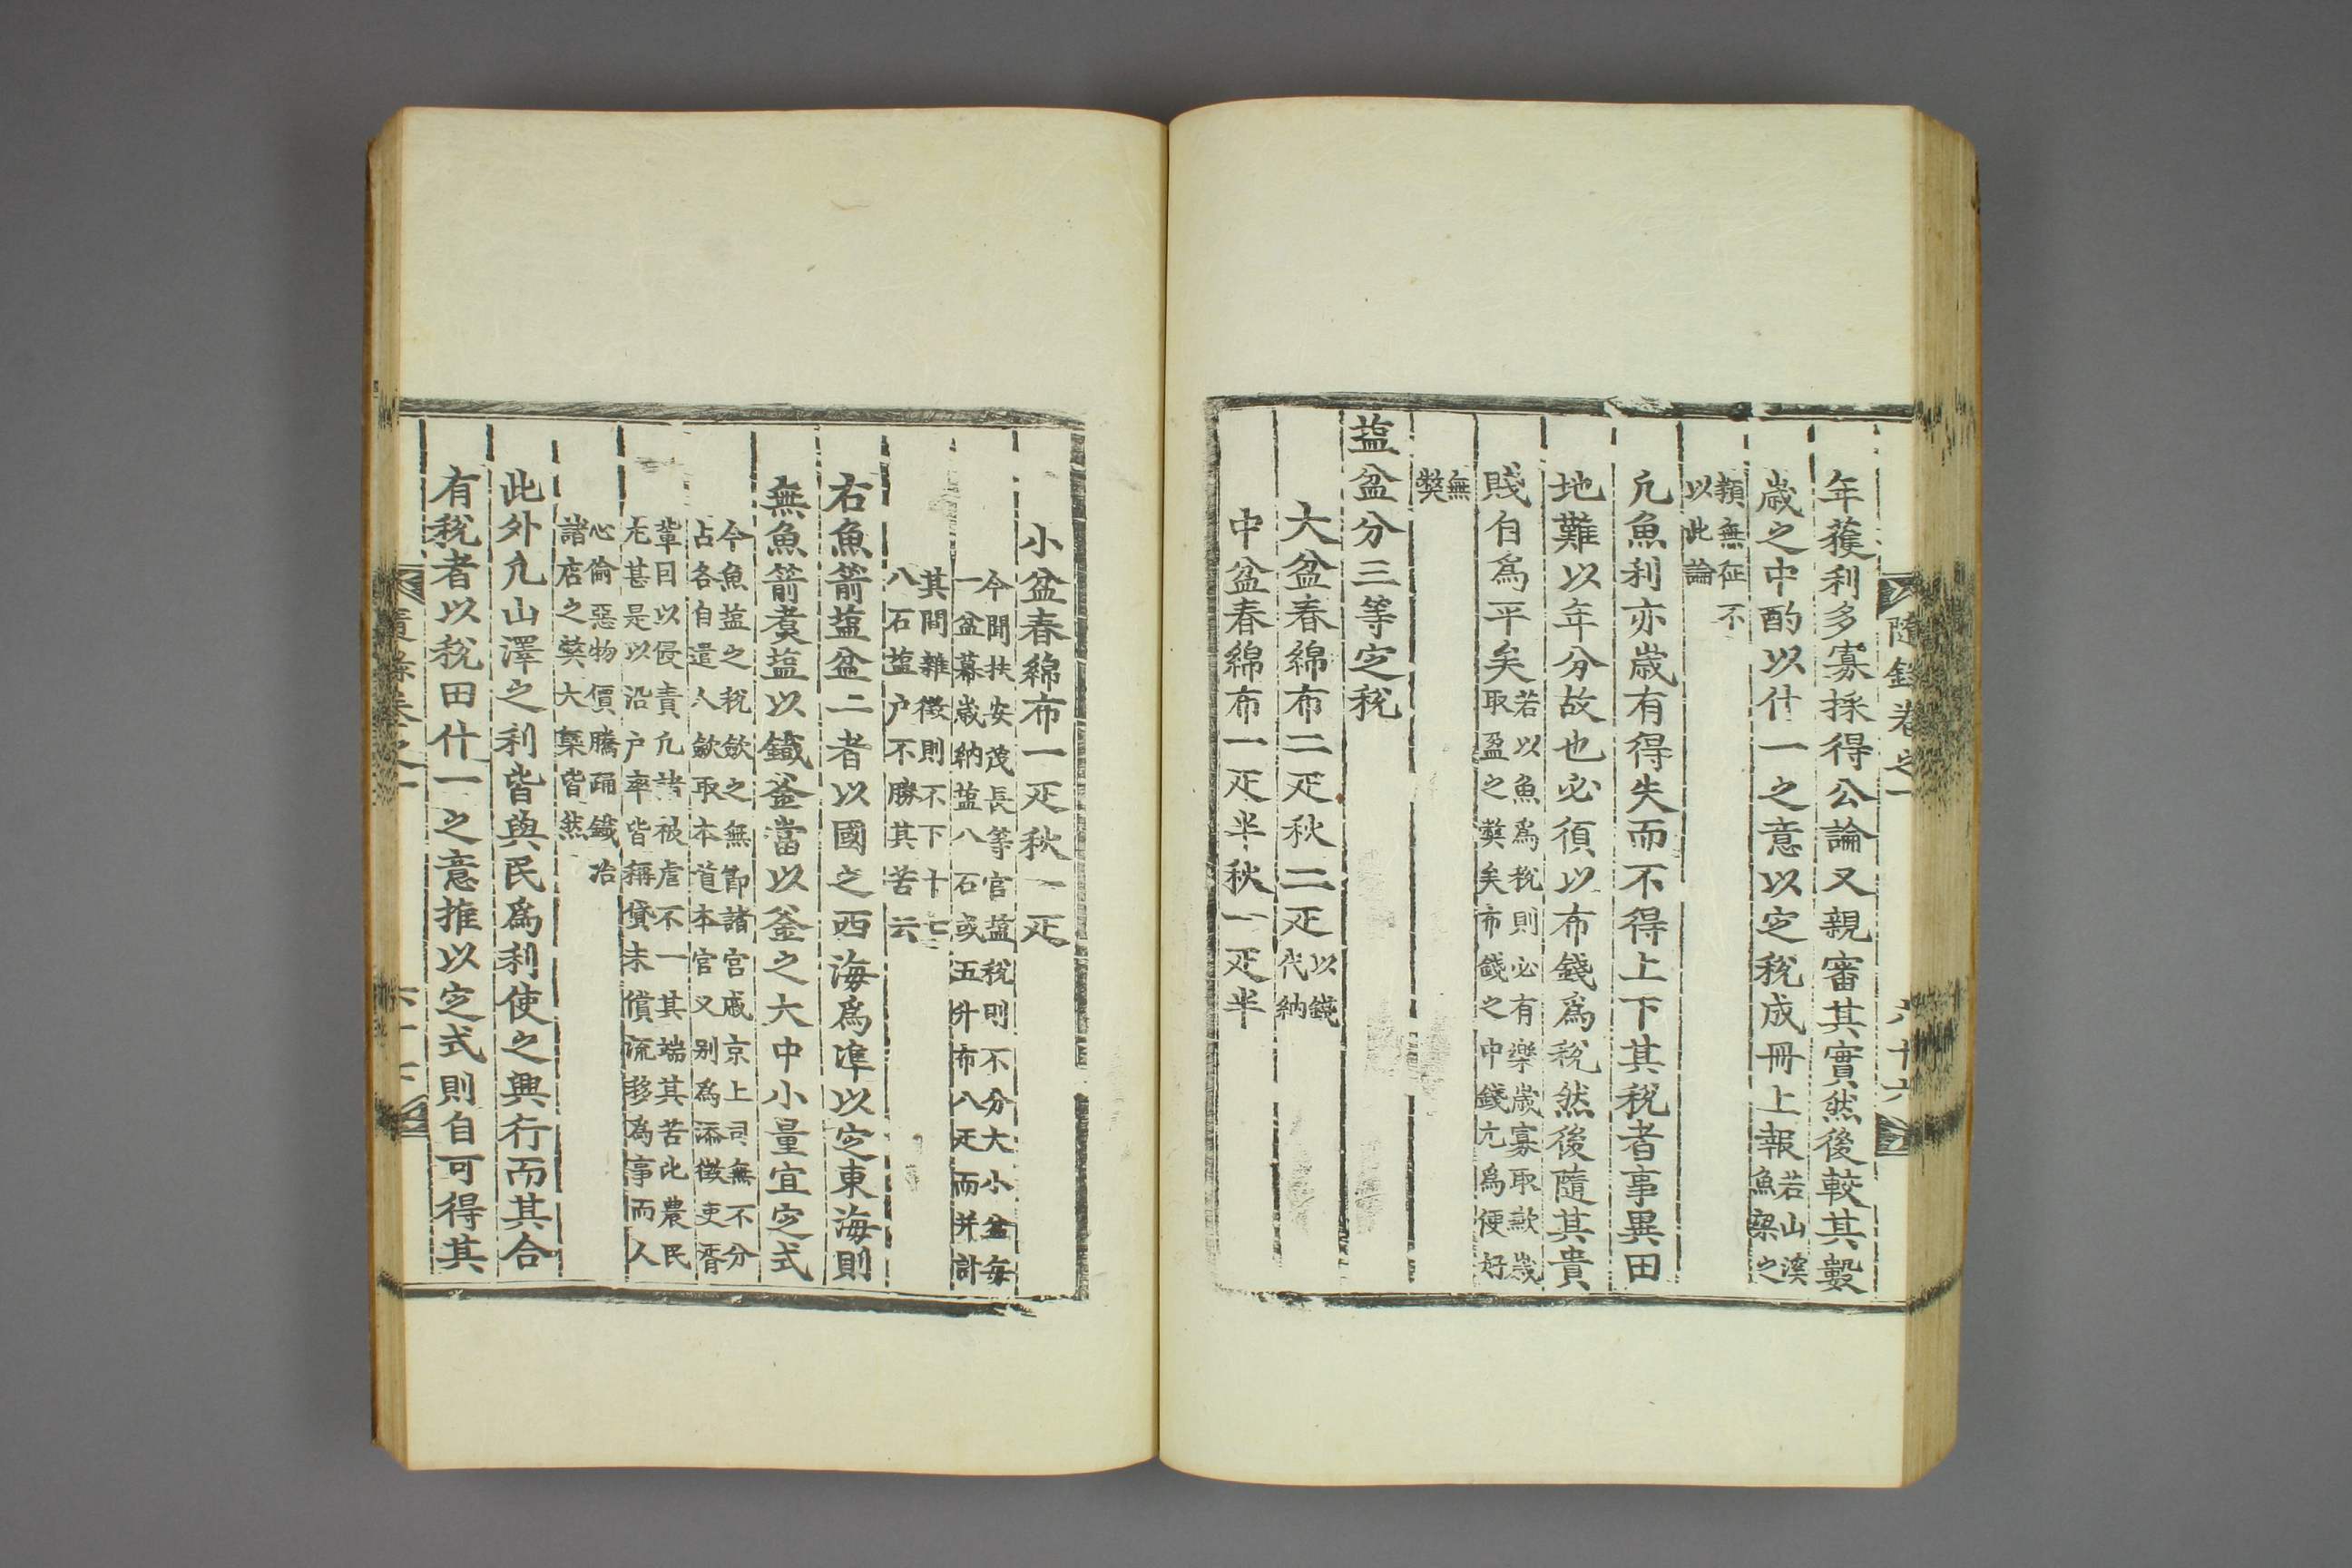 隨錄卷之一
六十六
年獲利多寡採得公論又親審其實然後較其數
歲之中酌以什一之意以定稅成冊上報若山溪魚梁之
類無征不以此論
凡魚利亦歲有得失而不得上下其稅者事異田
地難以年分故也必須以布錢爲稅然後隨其貴
賤自爲平矣若以魚爲稅則必有樂歲寡取歉歲取盈之獘矣布錢之中錢尤爲便好
無獘
盐盆分三等定稅
大盆春綿布二疋秋二疋以錢代納
中盆春綿布一疋半秋一疋半
小盆春綿布一疋秋一疋
今聞扶安茂長等官盐稅則不分大小盆每一盆幕歲納盐八石或五升布八疋而并計
其間雜徵則不下十七八石盐户不勝其苦云
右魚箭盐盆二者以國之西海爲準以定東海則
無魚箭煑盐以鐵釜當以釜之大中小量宜定式
今魚盐之稅歛之無節諸宮戚京上司無不分占各自遣人歛取本道本官又別爲添徵吏胥
輩因以侵責凡諸被虐不一其端其苦比農民尤甚是以沿户率皆稱貸未償流移爲事而人
心偷惡物價騰踊鐵冶諸店之獘大槩皆然
此外凡山澤之利皆與民爲利使之興行而其合
有稅者以稅田什一之意推以定式則自可得其
隨錄卷之一